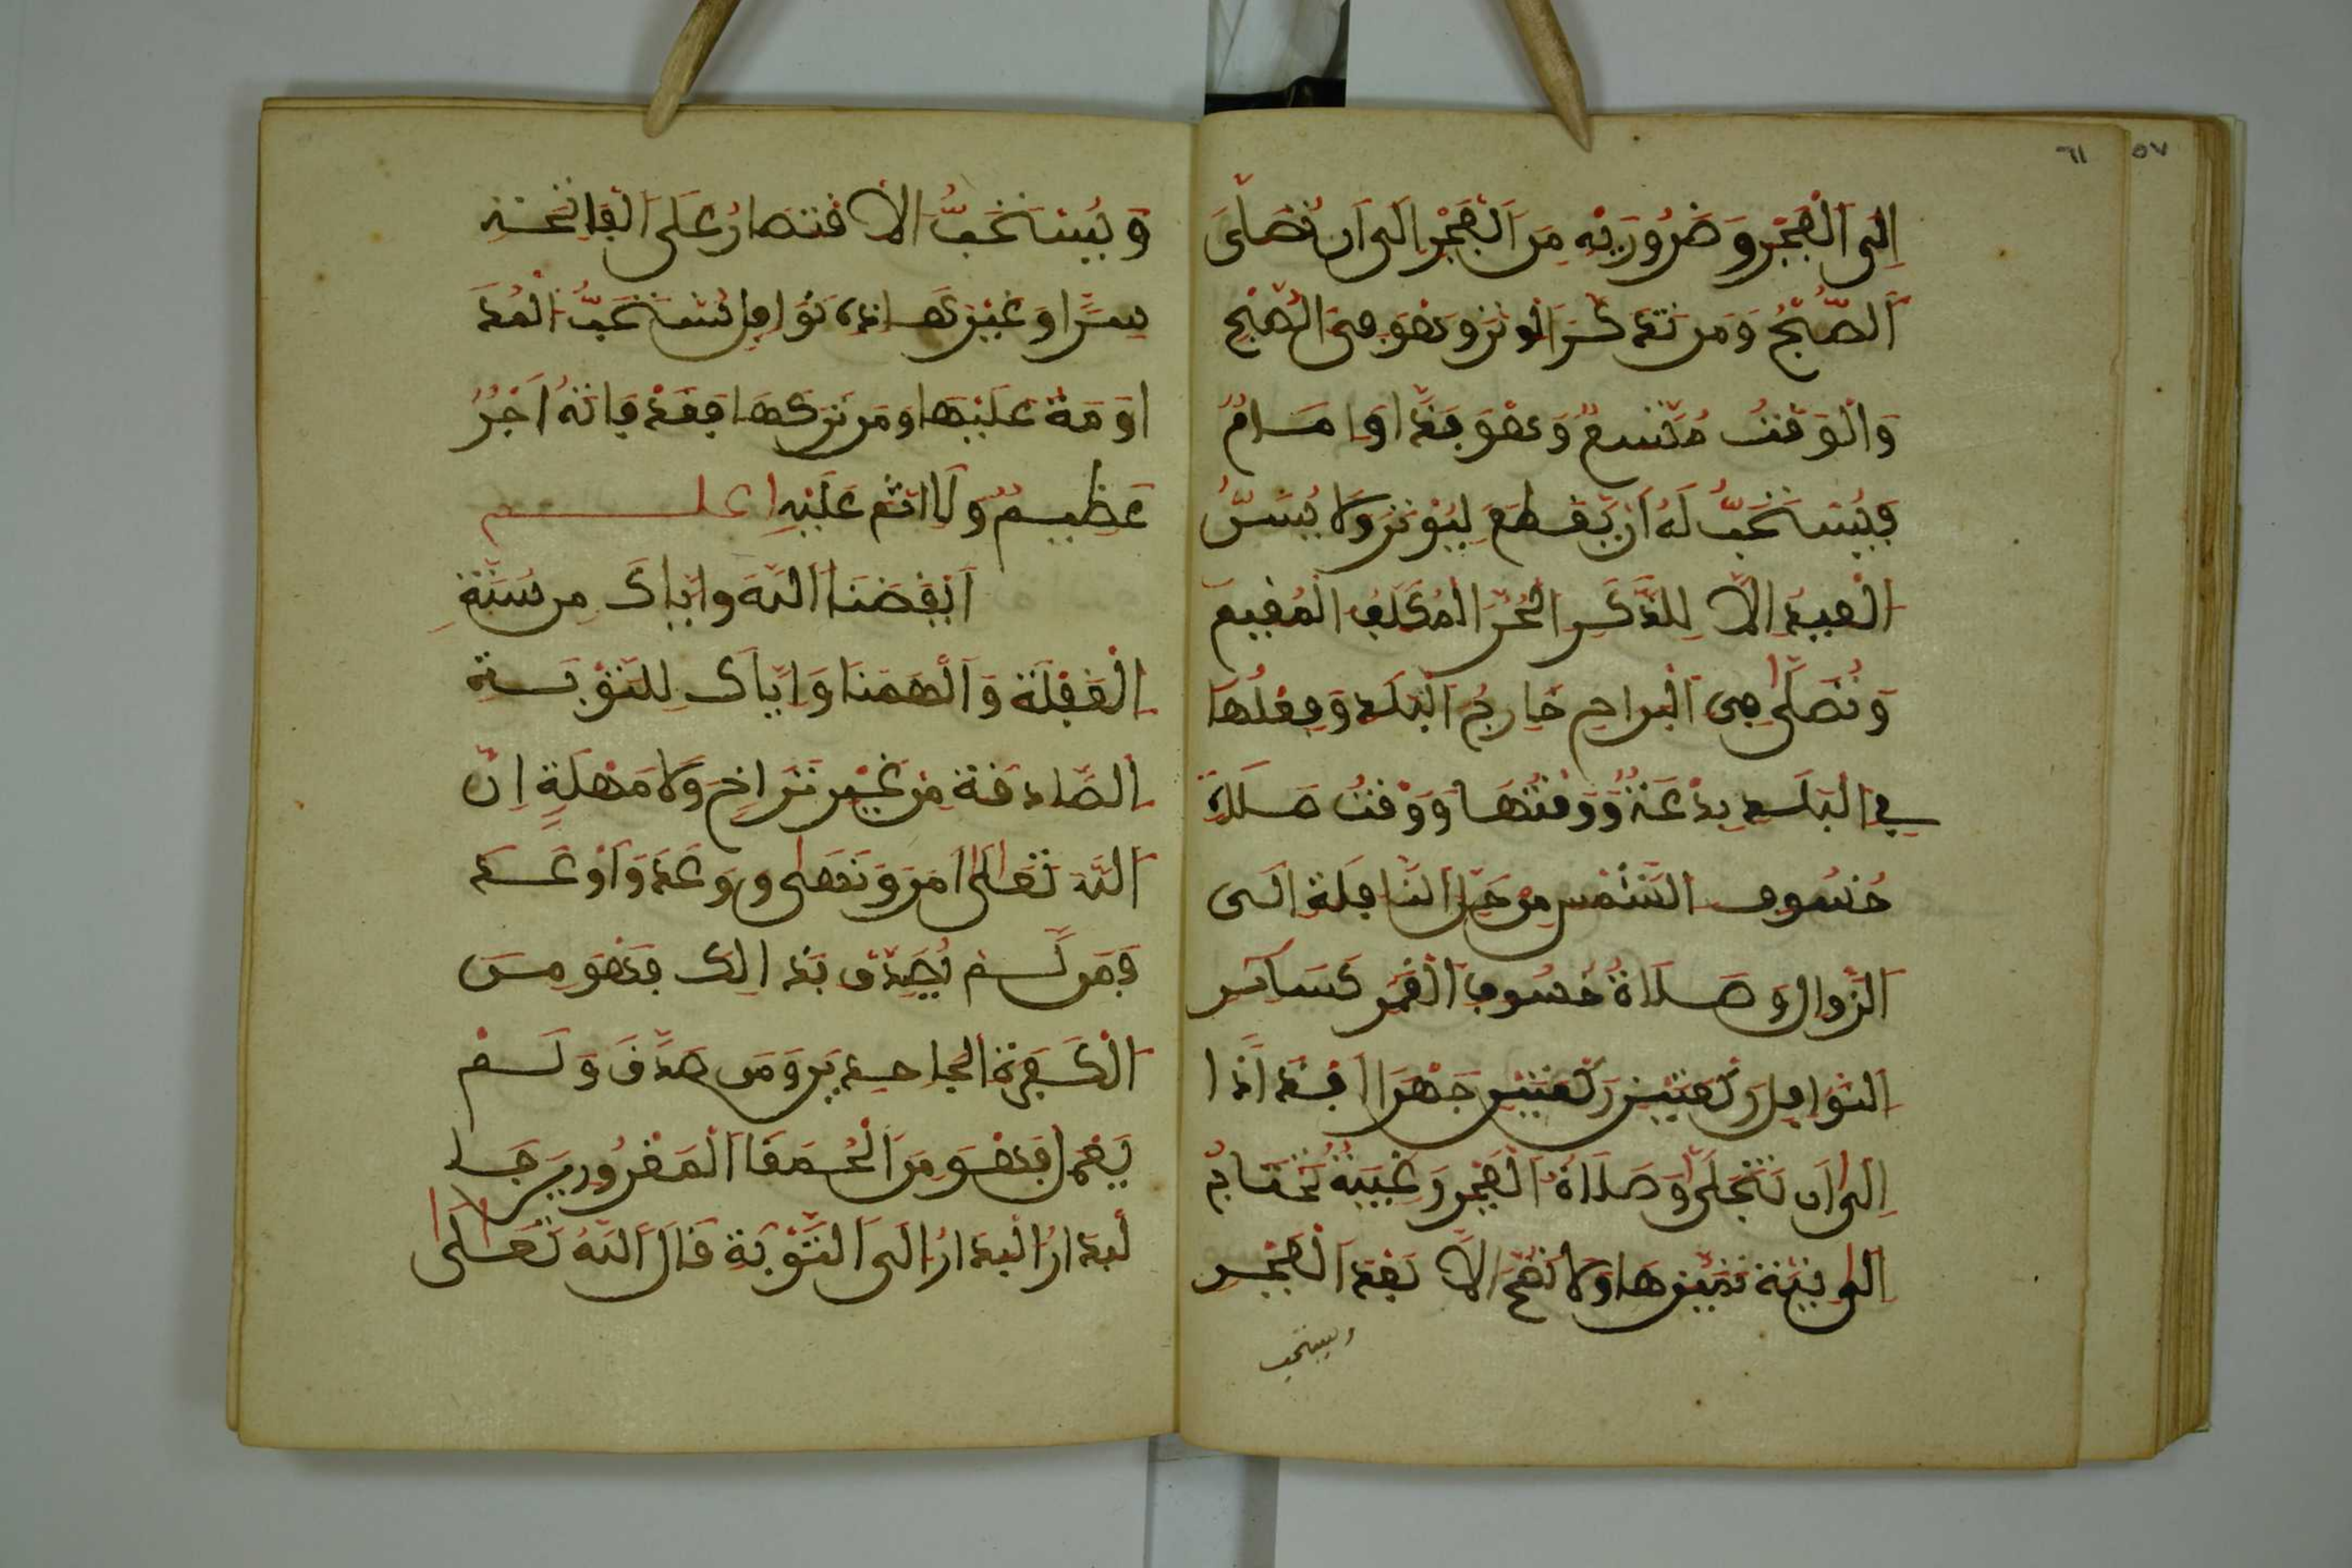 ٥٧
٦١
إلى الفجر وضروريه من الفجر إلى ان تصلى
الصبح ومن تذكر الوتر وهو في الصبح
والوقت متسع وهو فذ او امام
فيستحب له أن يقطع ليوتر ولا يسن
العيد الا للذكر الحر المكلف المقيم
وتصلى في البراح خارج البلد وفعلها
في البلد بدعة ووقتها ووقت صلاة
خسوف الشمس من حل النافلة الى
الزوال وصلاة خسوف القمر كساىر
النوافل ركعتين ركعتين جهرا افذاذا
الى ان تنجلى وصلاة الفجر رغيبة تحتاج
الى نية تميزها ولا تصح الا بعد الفجر
ويستحب
ويستحب الاقتصار على الفاتحة
سرا وغير هذه نوافل يستحب المد
اومة عليها ومن تركها فقد فاته أجر
عظيم ولا اثم عليه اعلم
ايقضنا الله واياك من سنة
الغفلة والهمنا واياك للتوبة
الصادقة من غير تراخ ولا مهلة ان
الله تعالى امر ونهى ووعد وأوعد
فمن لم يصدق بذالك فهو من
الكفرة الجاحدين ومن صدق ولم
يعمل فهو من الحمقا المغرورين جا
لبدار البدار الى التوبة قال الله تعالى